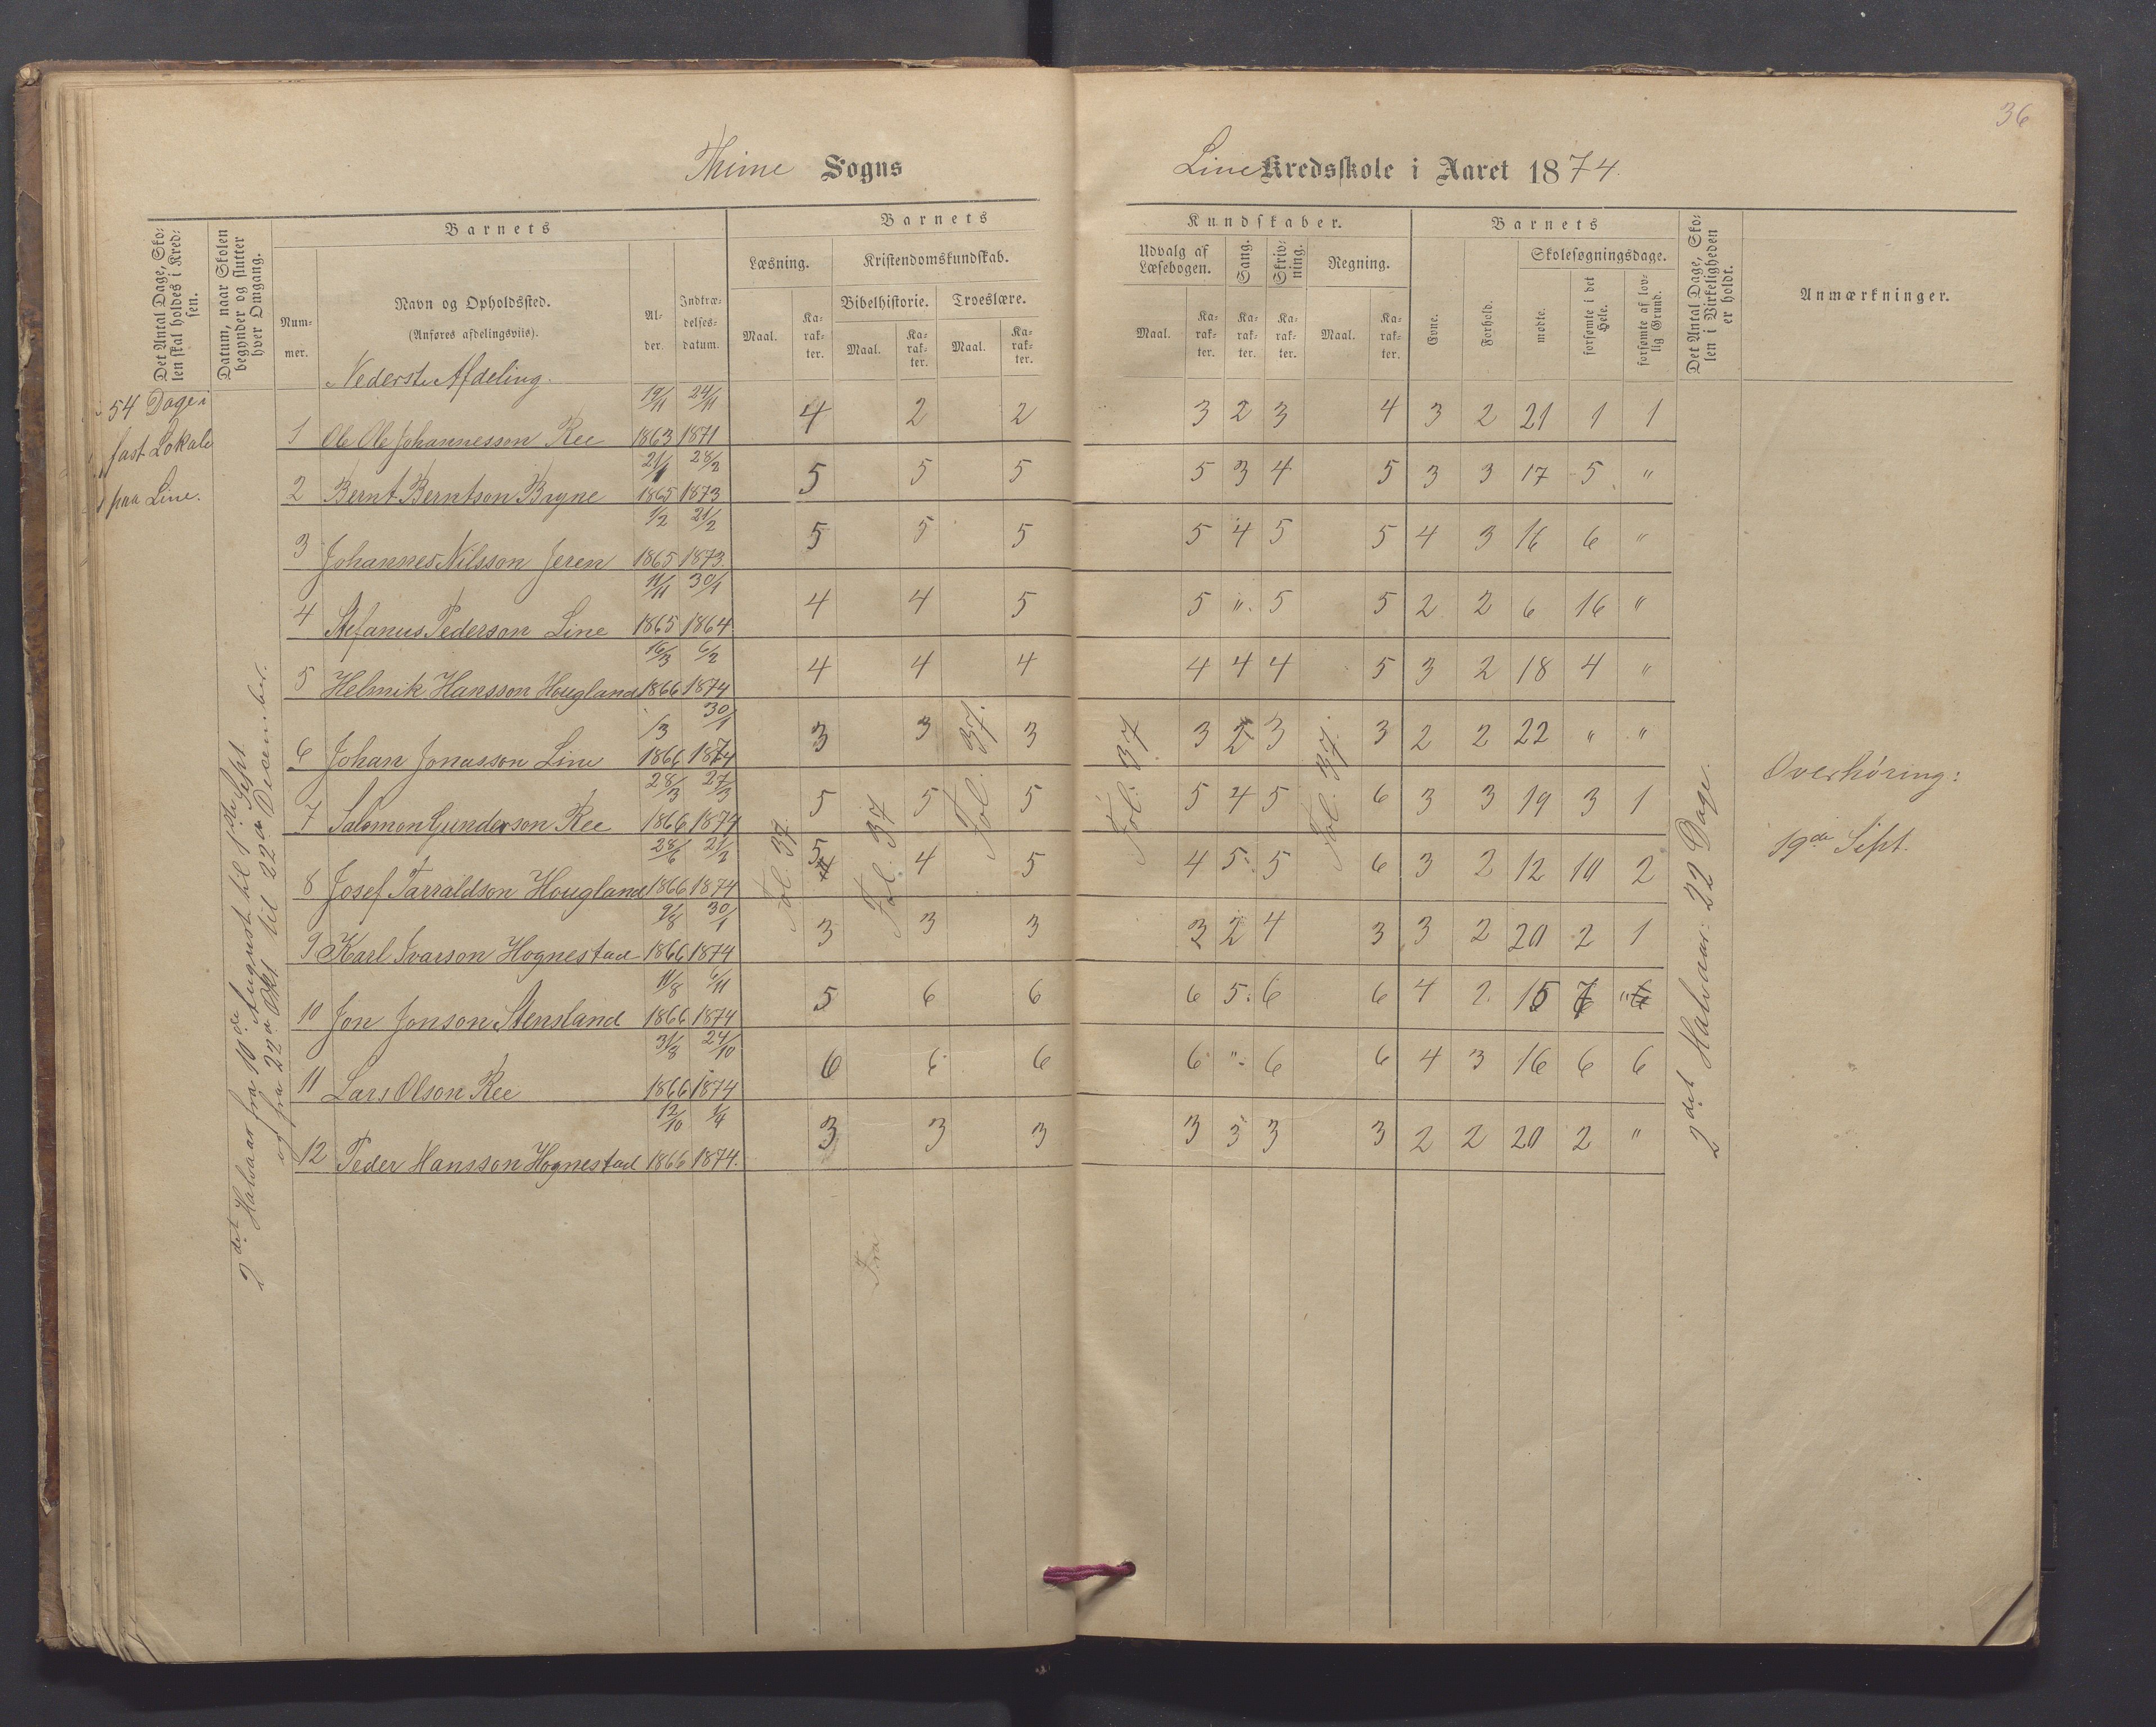 36
Thime Sogns
Line Kredsskole i Aaret 1874.
Det Antal Dage, Sko-
len skal holdes i Kred-
sen.
Datum, naar Skolen
begynder og slutter
hver Omgang.
Barnets
Num-
mer.
Navn og Opholdssted.
(Anføres afdelingsviis).
Al-
der.
Indtræ-
delses-
datum.
Barnets
Læsning.
Maal.
Ka-
rak-
ter.
Kristendomskundskab.
Bibelhistorie.
Maal.
Ka-
rak-
ter.
Troeslære.
Maal.
Ka-
rak-
ter.
Kundskaber.
Udvalg af
Læsebogen.
Maal.
Ka-
rak-
ter.
Sang.
Ka-
rak-
ter.
Skriv-
ning.
Ka-
rak-
ter.
Regning.
Maal.
Ka-
rak-
ter.
Barnets
Evne.
Forhold.
Skolesøgningsdage.
mødte.
forsømte i det
Hele.
forsømte af lov-
lig Grund.
Det Antal Dage, Sko-
len i Virkeligheden
er holdt.
Anmærkninger.
54 Dage i
fast Lokale
paa Line.
2det Halvaar fra 10de August til 1ste Sept.
og fra 22de Okt til 22de December.
Nederste Afdeling.
19/11 24/11
1 Ole Ole Johannesson Ree 1863 1871 4 2 2 3 2 3 4 3 2 21 1 1
21/1 28/2
2 Bernt Berntson Bryne 1865 1873 5 5 5 5 3 4 5 3 3 17 5 "
1/2 21/2
3 Johannes Nilsson Jeren 1865 1873. 5 5 5 5 4 5 5 4 3 16 6 "
11/11 30/1
4 Stefanus Pederson Line 1865 1864. 4 4 5 5 ". 5 5 2 2 6 16 "
16/3 6/2
5 Helmik Hansson Hougland 1866 1874 4 4 4 4 4 4 5 3 2 18 4 "
/3 30/1
6 Johan Jonasson Line 1866 1874 3 3 3 3 2 3 3 2 2 22 " "
28/3 27/3
7 Salomon Gunderson Ree 1866 1874 5 5 5 5 4 5 6 3 3 19 3 1
28/6 21/2
8 Josef Tarraldson Hougland 1866 1874 5 4 5 4 5. 5 6 3 2 12 10 2
9/8 30/1
9 Karl Ivarson Hognestad 1866 1874 3 3 3 3 2 4 3 3 2 20 2 1
11/8 6/11
10 Jon Jonson Stensland 1866 1874 5 6 6 6 5. 6 6 4 2. 15 7 "
31/8 24/10
11 Lars Olson Ree 1866 1874 6 6 6 6 ". 6 6 4 3 16 6 6
12/10 1/4
12 Peder Hansson Hognestad 1866 1874. 3 3 3 3 3 3 3 2 2 20 2 "
Fol. 37.
Fol. 37
Fol. 37.
Fol. 37
Fol. 37.
2det Halvaar: 22 Dage.
Overhöring:
19de Sept.